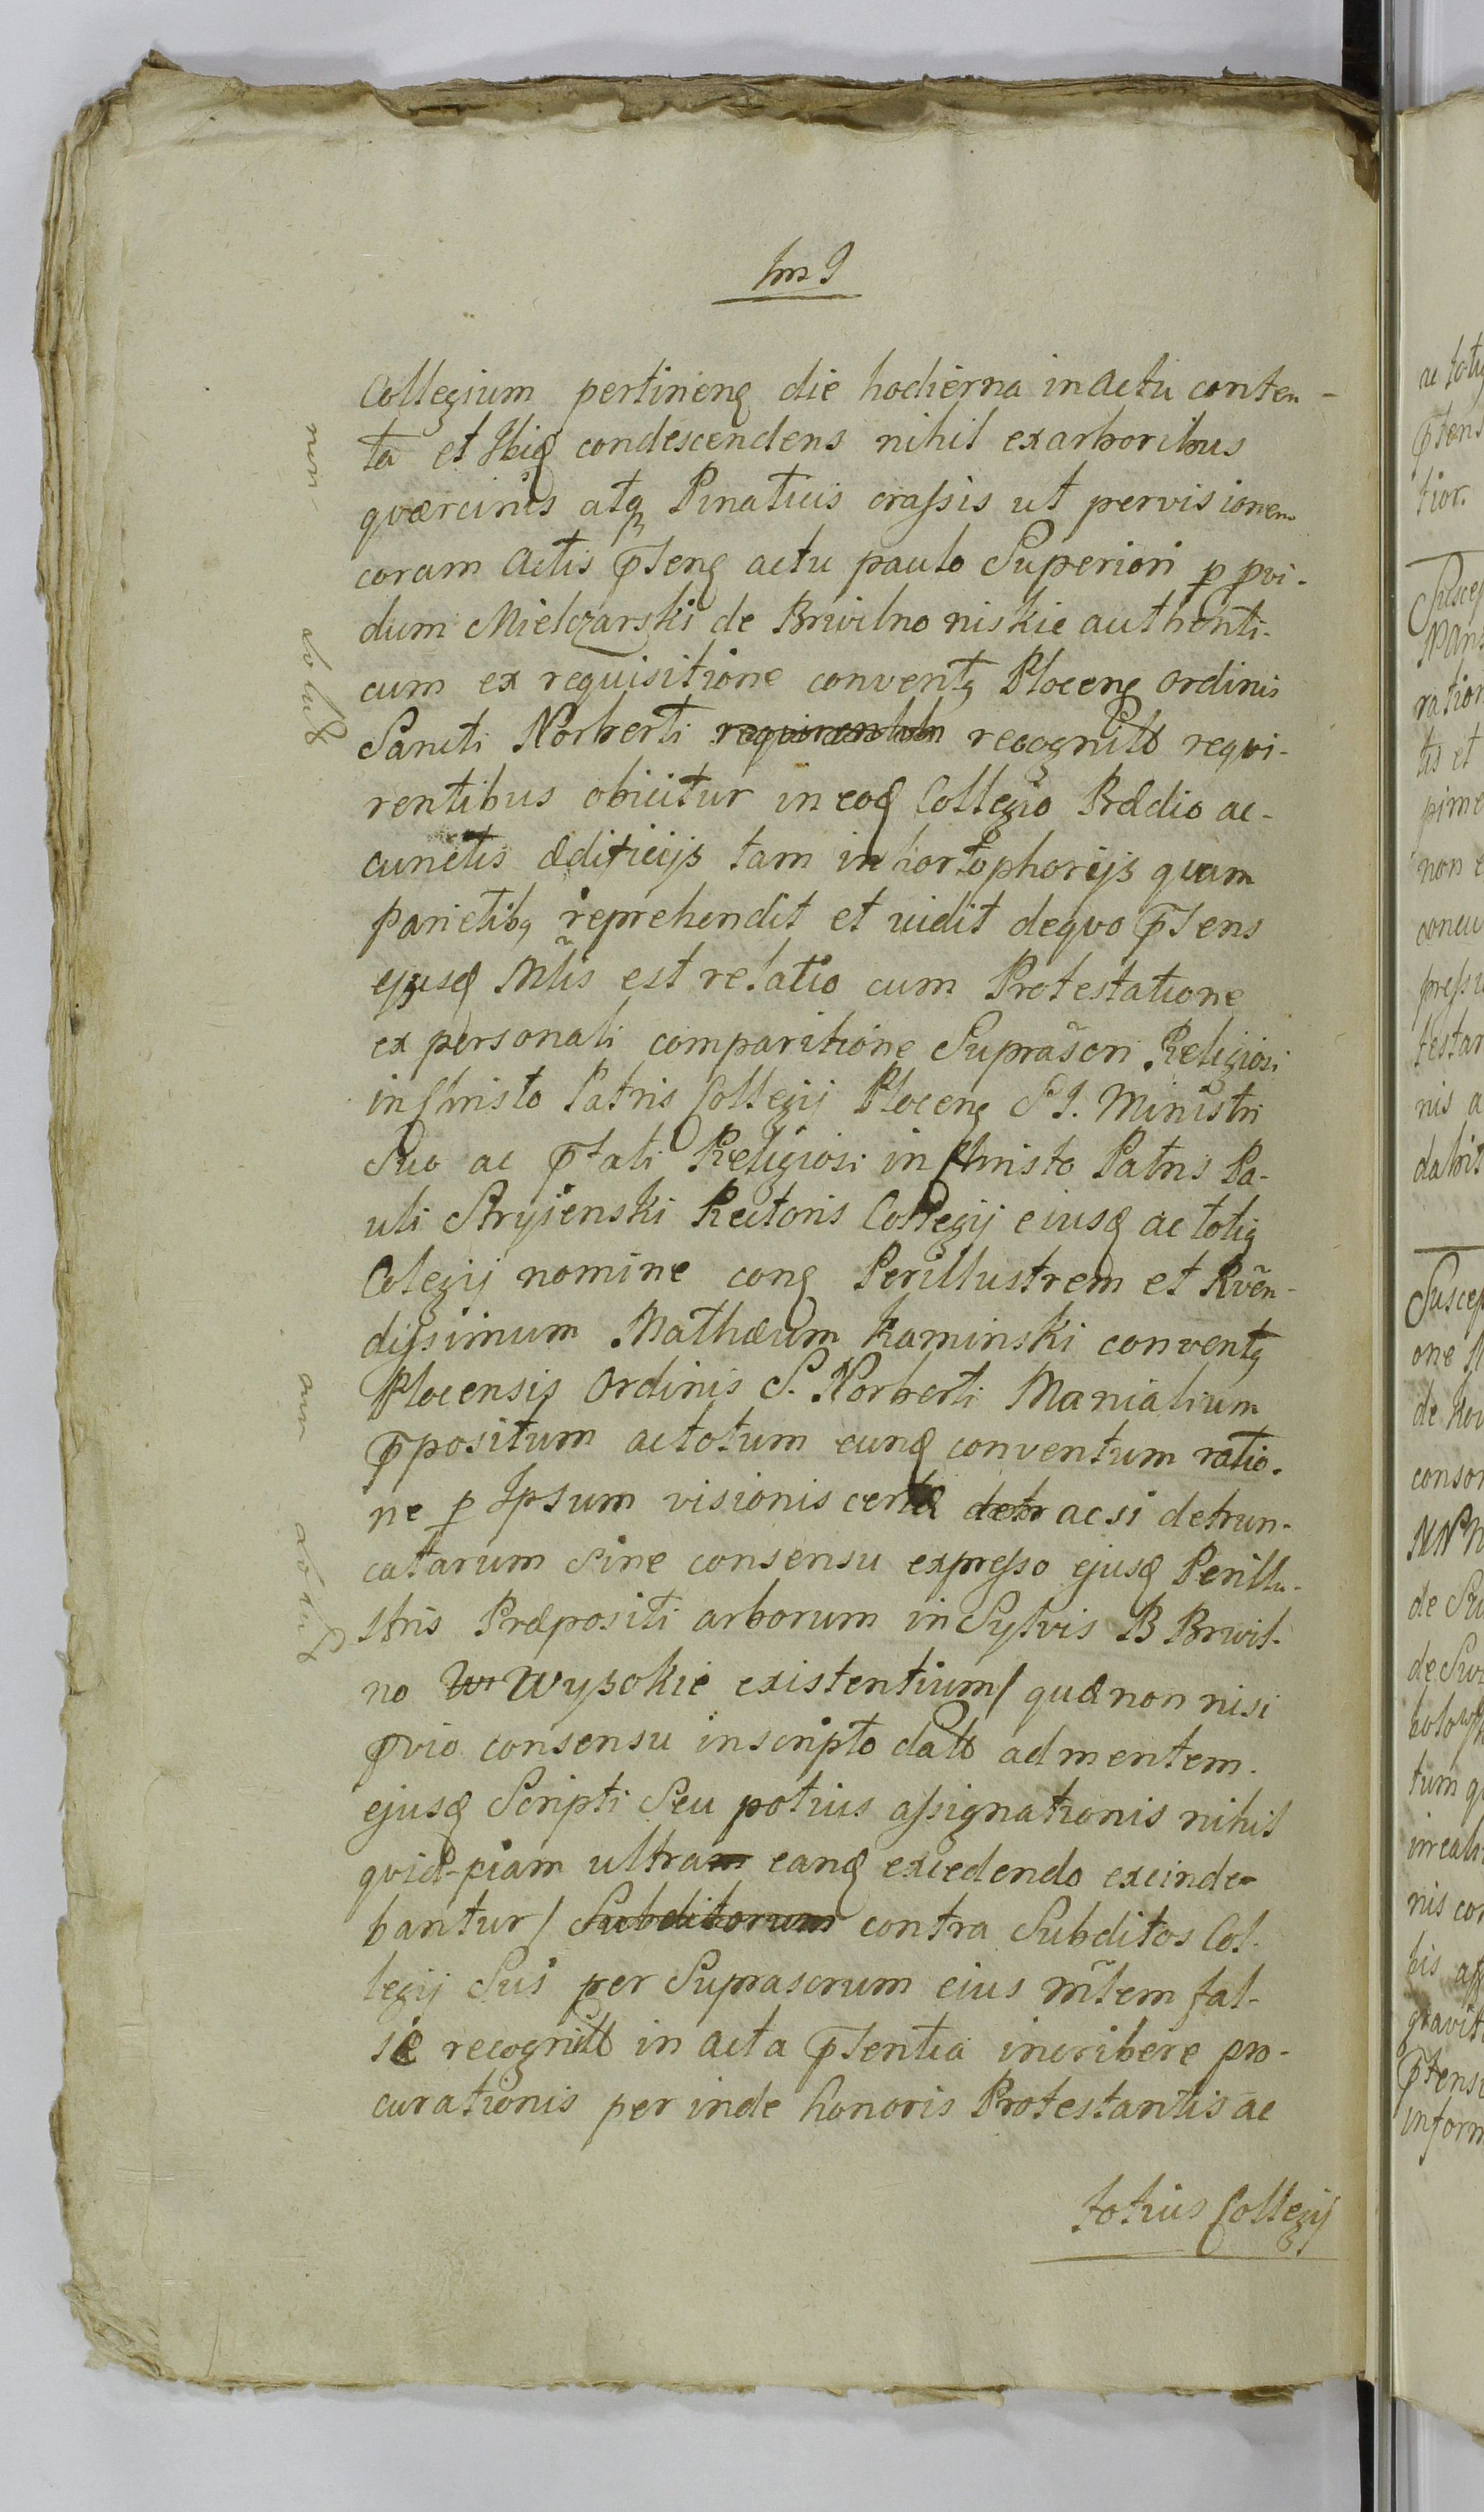 Collegium pertineng die hodierna in actu conten-
ta et Ibiq condescendens nihil ex arboribus
qvercinis atq Pinaticis crassis ut per visionem
coram Actis pteng actu paulo Superiori p pvi-
dum Mielczarski de Brwilno niskie authenti-
cum ex requisitione convent9 Ploceng Ordinis
Sancti Norberti recognito reqvi-
rentibus obiicitur in eoq Collegio Prædio ac
cunctis ædificijs tam in hortophorijs quam
parietib9 reprehendit et vidit de qvo ptens
ejusq Mlis est relatio cum Protestatione
ex personali comparitione Suprascri Religiosi
in Christo Patris Collegij Ploceng S I. Ministri
Suo ac ptati Religiosi in Christo Patris Pa-
uli Stryienski Rectoris Collegij eiusq ac toti9
Colegij nomine cong Perillustrem et Rven-
dissimum Mathæum Kaminski convent9
Plocensis Ordinis S. Norberti Manialium
ppositum ac totum eunq conventum ratio-
ne p Ipsum visionis certæ ac si detrun-
catarum Sine consensu expresso ejusq Perillu-
stris Præpositi arborum in Sylvis B Brwil-
no Wysokie existentium/ quæ non nisi
pvio consensu in scripto dato ad mentem
ejusq Scripti Seu potius assignationis nihil
qvid-piam ultra eanq excedendo excinde-
bantur/ contra Subditos Col-
legij Sui per Suprascrum eius mltem fal-
se recognito in acta ptentia incribere pro-
curationis per inde honoris Protestantis ac
totius Collegij